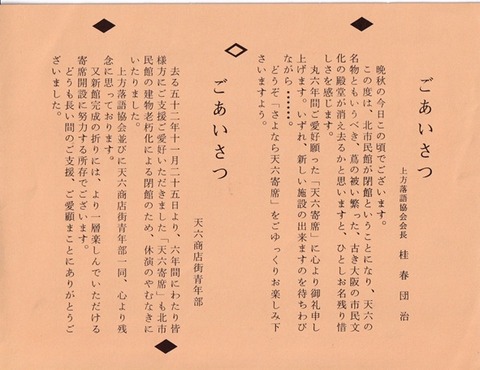 ごあいさつ
上方落語協会会長 桂春団治
晩秋の今日この頃でございます。
この度は、北市民館が閉館ということになり、天六の
名物ともいうべき、蔦の被い繁った、古き大阪の市民文
化の殿堂が消え去るかと思いますと、ひとしお名残り惜
しさを感じます。
丸六年間ご愛好願った「天六寄席」に心より御礼申し
上げます。いずれ、新しい施設の出来ますのを待ちわび
ながら……。
どうぞ「さよなら天六寄席」をごゆっくりお楽しみ下
さいますよう。
ごあいさつ
天六商店街青年部
去る五十二年十一月二十五日より、六年間にわたり皆
様方にご支援ご愛好いただきました「天六寄席」も北市
民館の建物老朽化による閉館のため、休演のやむなきに
いたりました。
上方落語協会並びに天六商店街青年部一同、心より残
念に思っております。
又新館完成の折りには、より一層楽しんでいただける
寄席開設に努力する所存でございます。
どうも長い間のご支援、ご愛顧まことにありがとうご
ざいました。